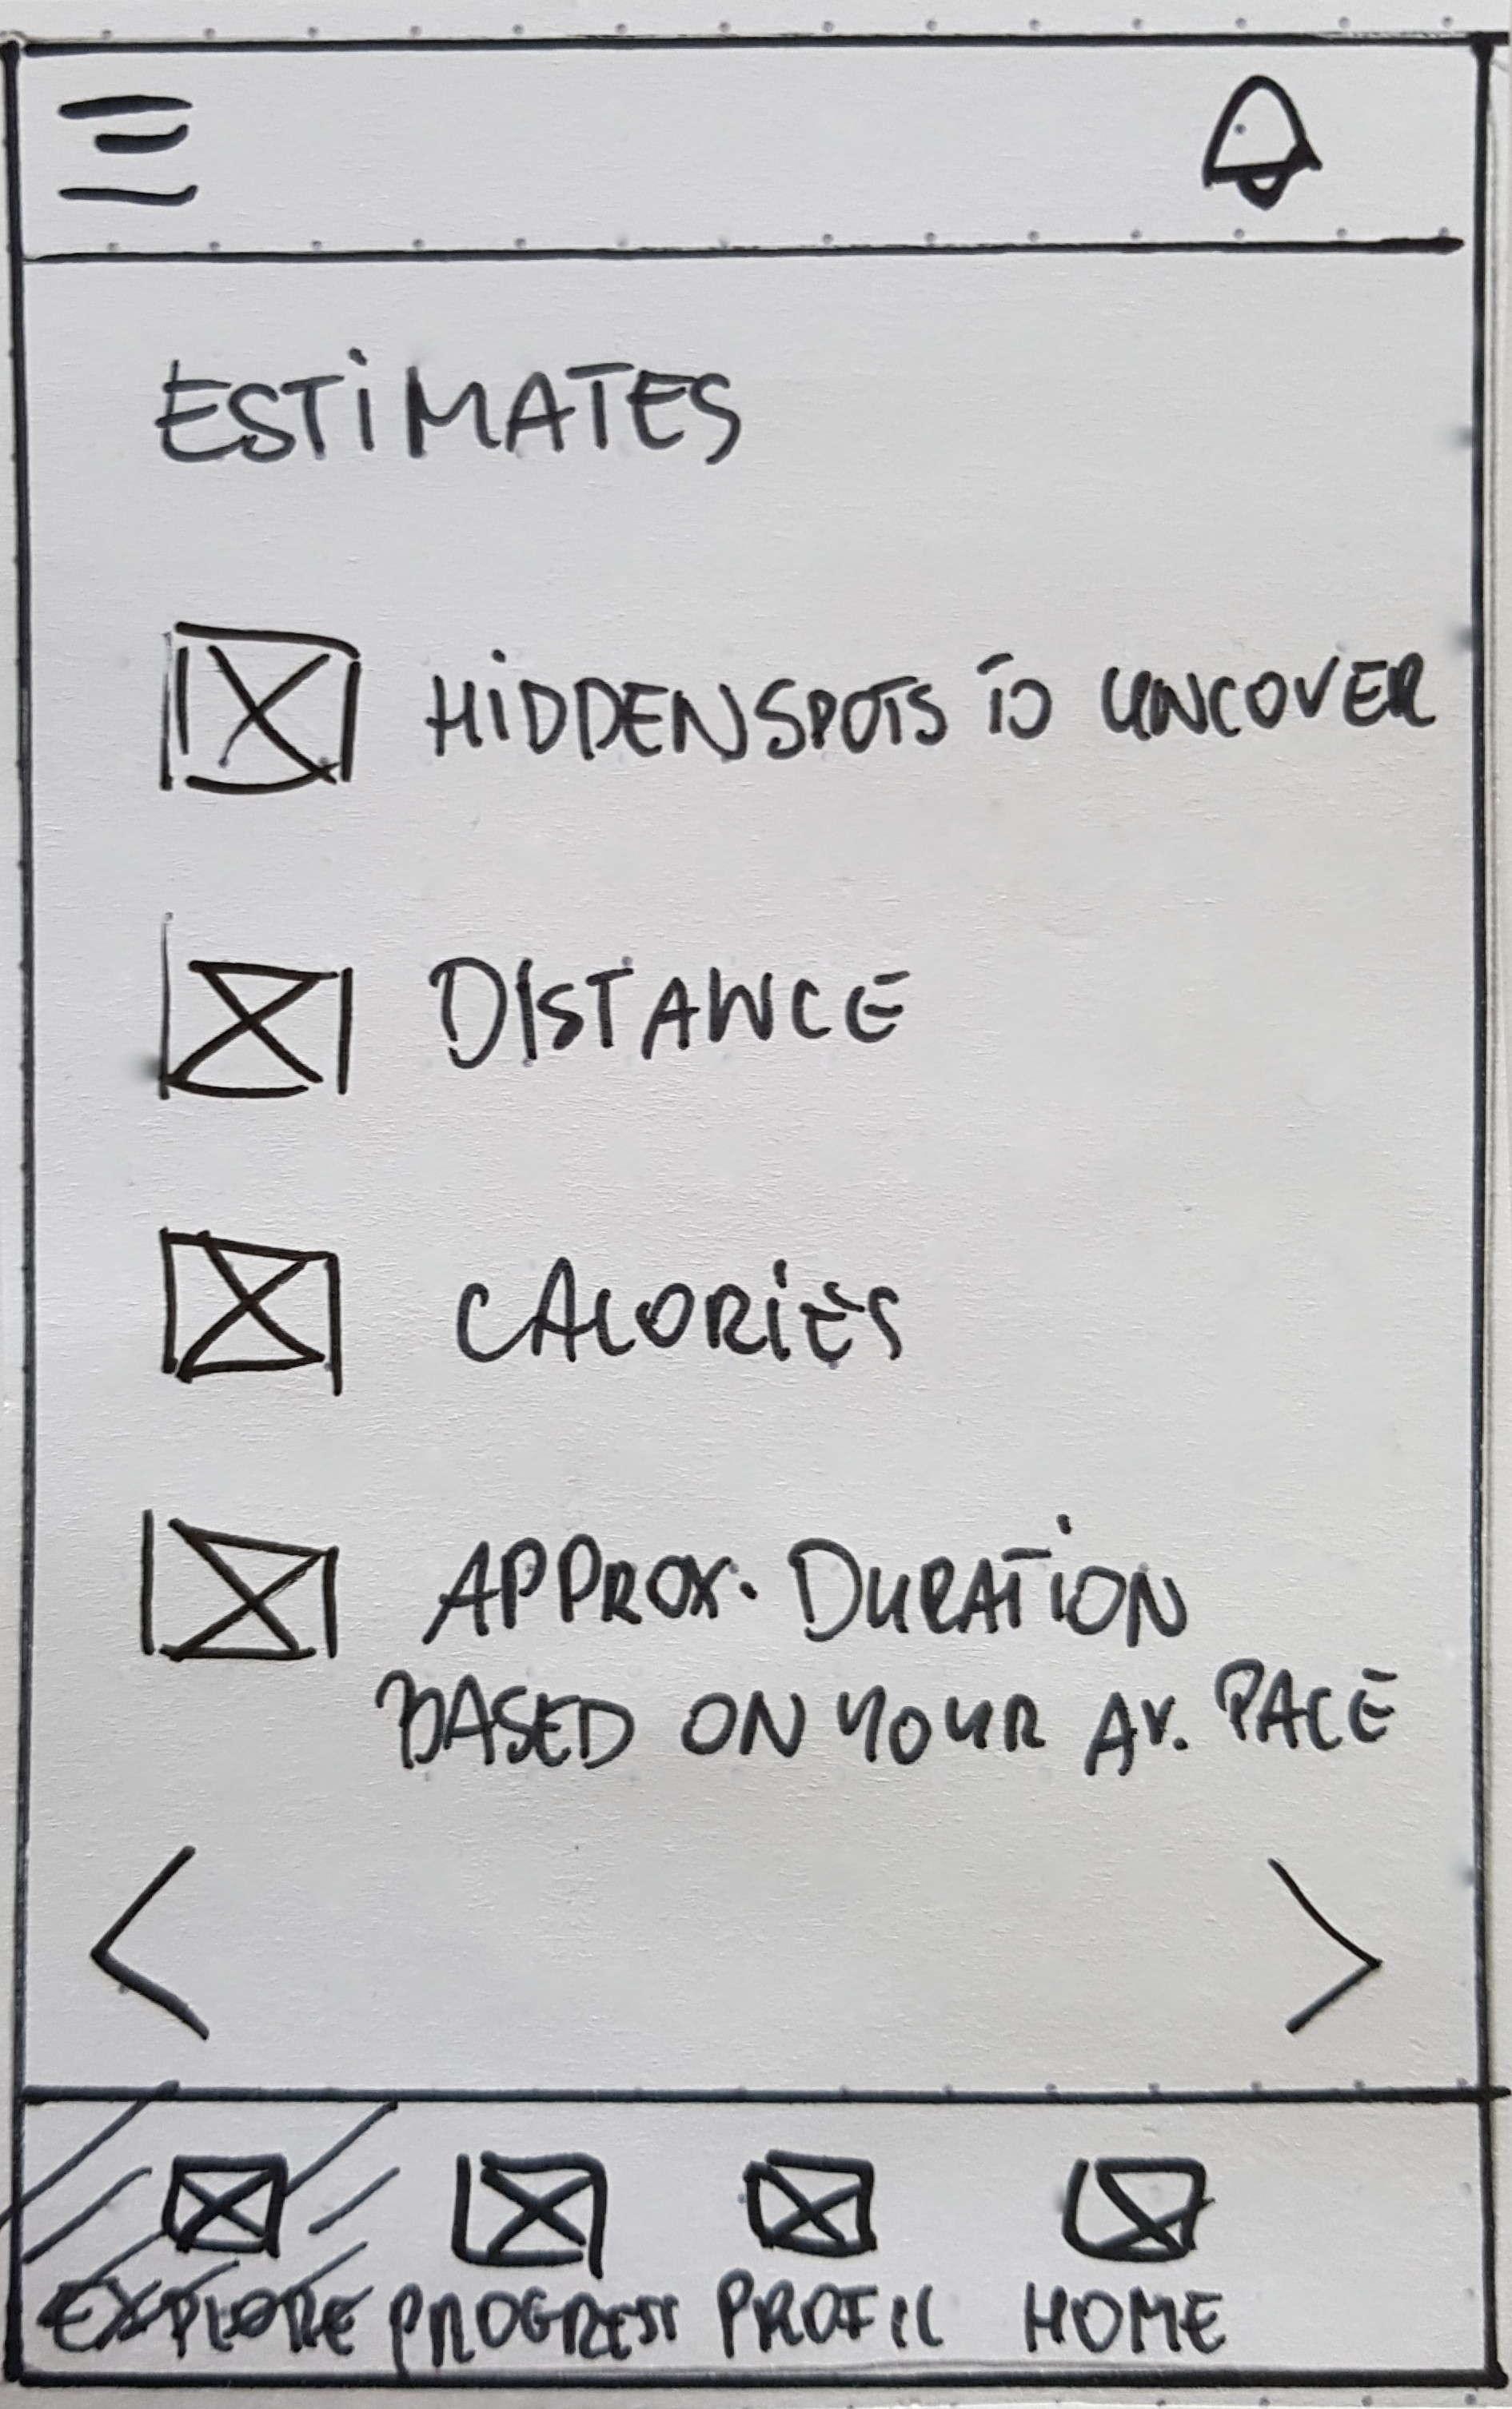 ESTIMATES
HIDDEN SPOTS TO UNCOVER
DISTANCE
CALORIES
APPROX. DURATION
BASED ON YOUR AV. PACE
EXPLORE PROGRESS PROFIL HOME